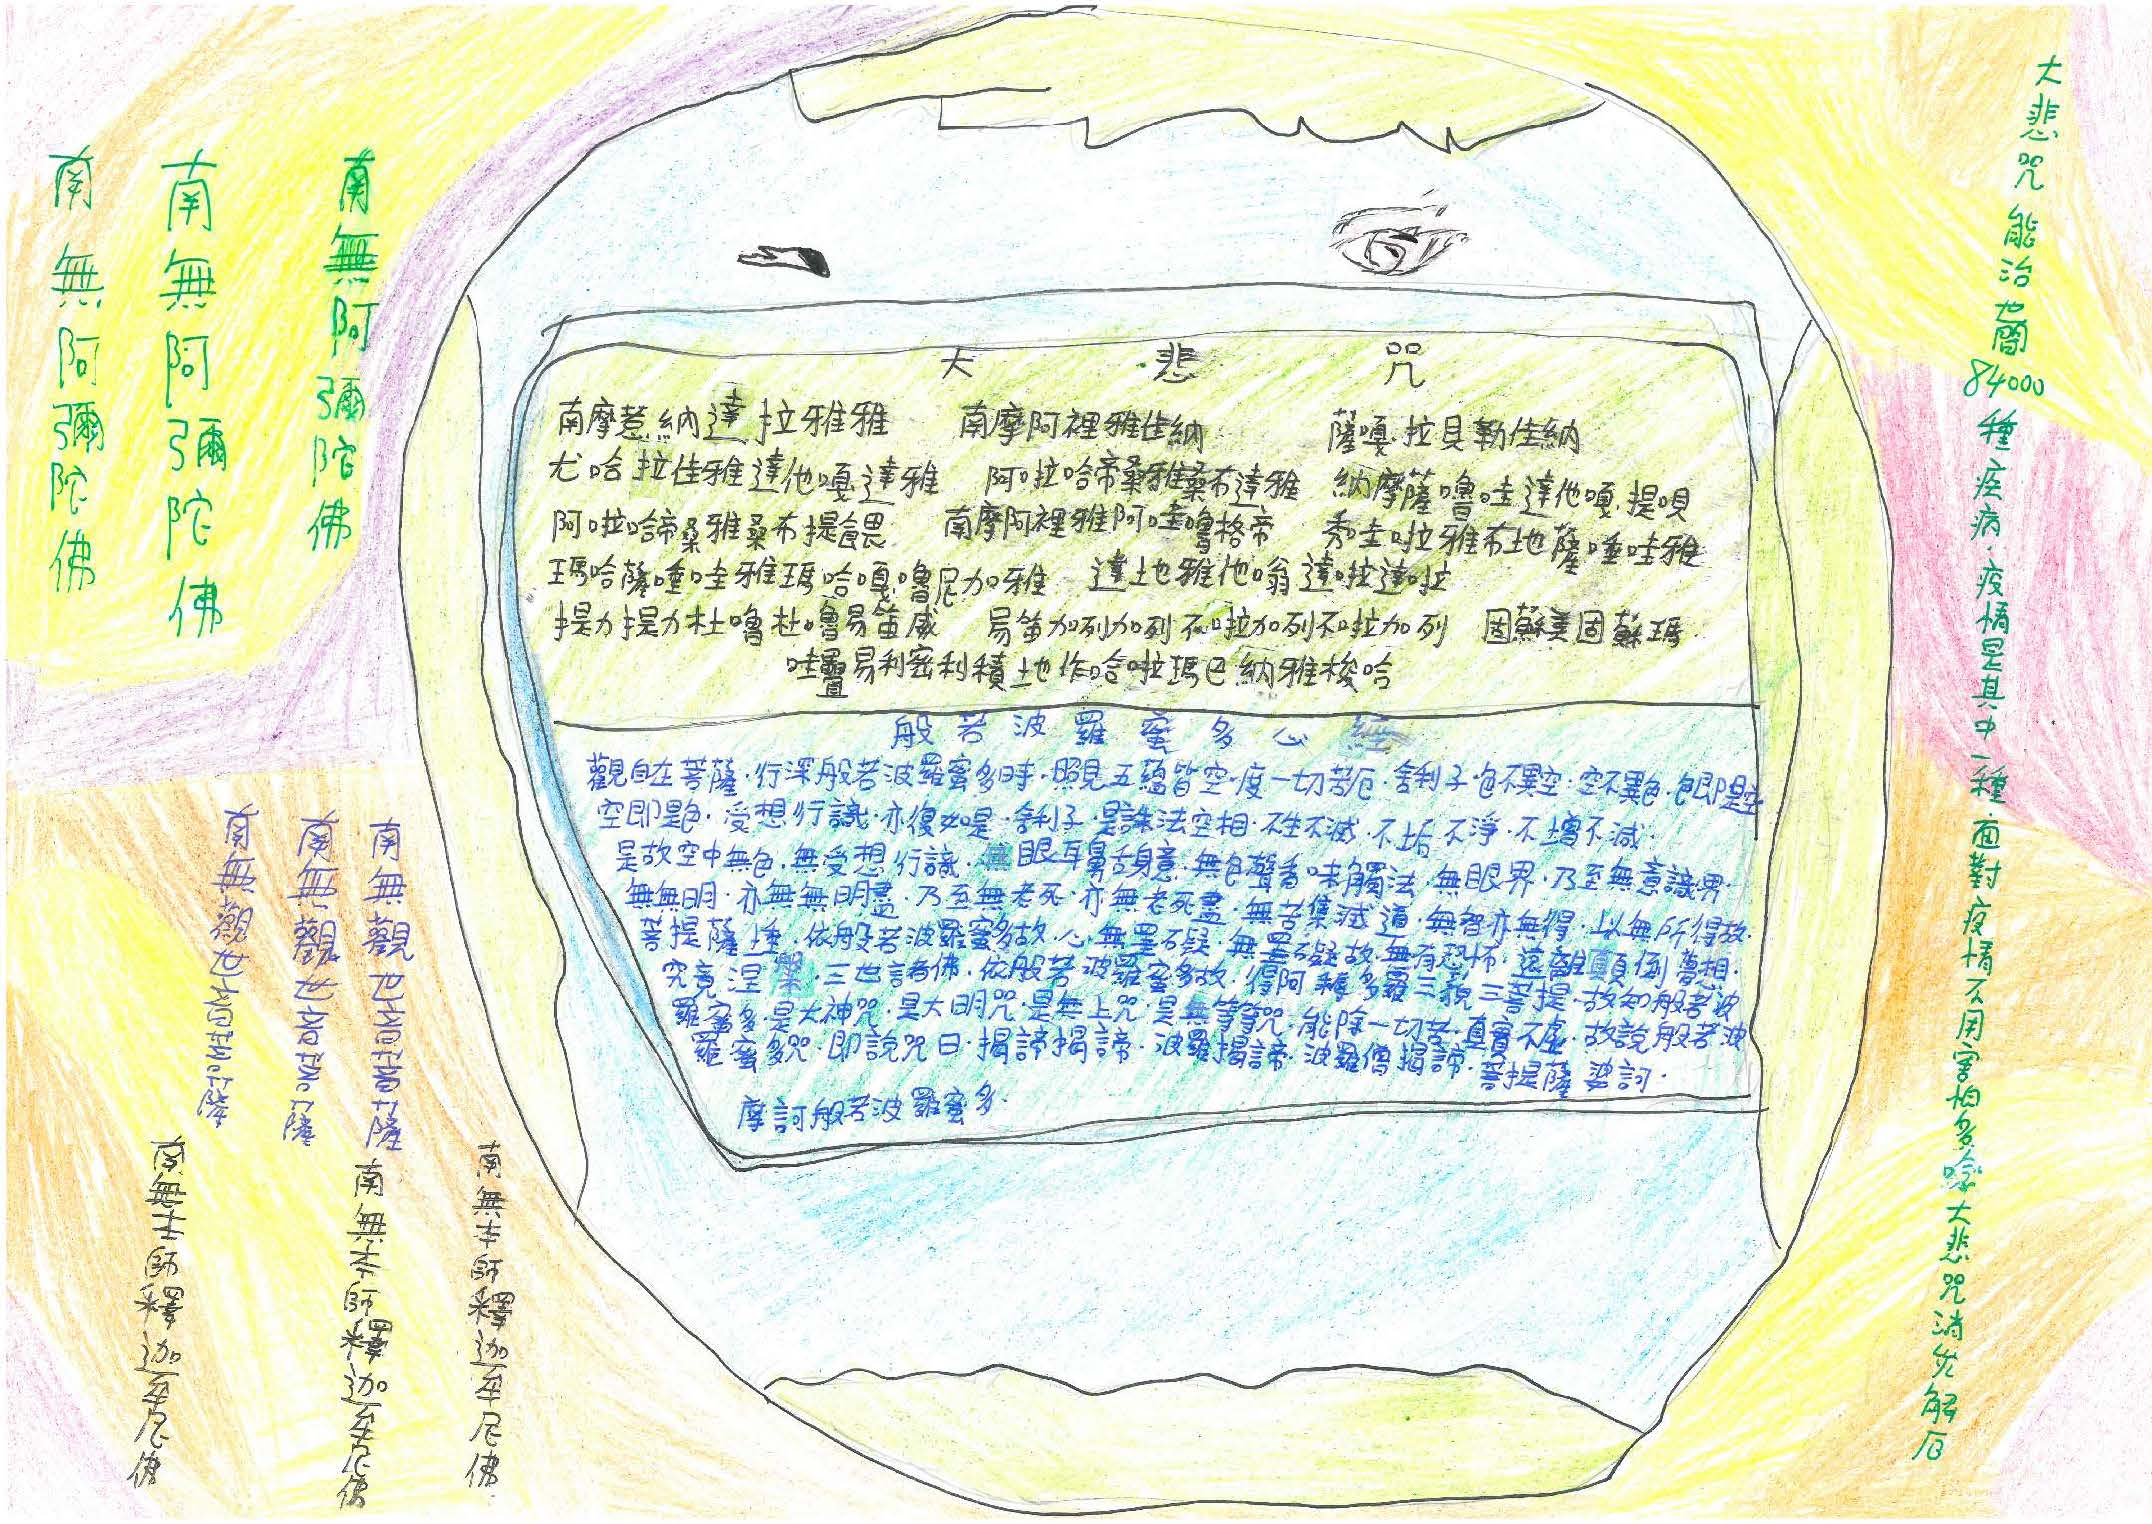 大悲咒能治世間84000種疾病.疫情是其中一種.面對疫情不用害怕多唸大悲咒消災解厄
南無阿彌陀佛
南無阿彌陀佛
南無阿彌陀佛
大悲咒
南摩惹納達拉雅雅 南摩阿裡雅佳納 薩嘎拉貝勒佳納
尤哈拉佳雅達他嘎達雅 阿啦哈帝桑雅桑布達雅 納摩薩嚕哇達他嘎提唄
阿啦哈帝桑雅桑布提餵 南摩阿裡雅阿哇嚕格帝 秀哇啦雅布地薩埵哇雅
瑪哈薩埵哇雅瑪哈嘎嚕尼加雅 達土地雅他嗡達啦達啦
提力提力杜嚕杜嚕易笛威 易笛加列加列不啦加列不啦加列 固蘇美固蘇瑪
哇易利密利積土地作哈啦瑪巴納雅梭哈
般若波羅蜜多心經
觀自在菩薩.行深般若波羅蜜多時.照見五蘊皆空.度一切苦厄.舍利子色不異空.空不異色.色即是空
空即是色.受想行識.亦復如是.舍利子.是諸法空相.不生不滅.不垢不淨.不增不減.
是故空中無色.無受想行識.無眼耳鼻舌身意.無色聲香味觸法.無眼界.乃至無意識界.
無無明.亦無無明盡.乃至無老死.亦無老死盡.無苦集滅道.無智亦無得.以無所得故.
菩提薩埵.依般若波羅蜜多故.心無罣礙.無罣礙故.無有恐怖.遠離顛倒夢想.
究竟涅槃.三世諸佛.依般若波羅蜜多故.得阿耨多羅三藐三菩提.故知般若波
羅蜜多.是大神咒.是大明咒.是無上咒.是無等等咒.能除一切苦.真實不虛.故說般若波
羅蜜多咒.即說咒曰.揭諦揭諦.波羅揭諦.波羅僧揭諦.菩提薩婆訶.
摩訶般若波羅蜜多.
南無觀世音菩薩
南無觀世音菩薩
南無觀世音菩薩
南無本師釋迦牟尼佛
南無本師釋迦牟尼佛
南無本師釋迦牟尼佛